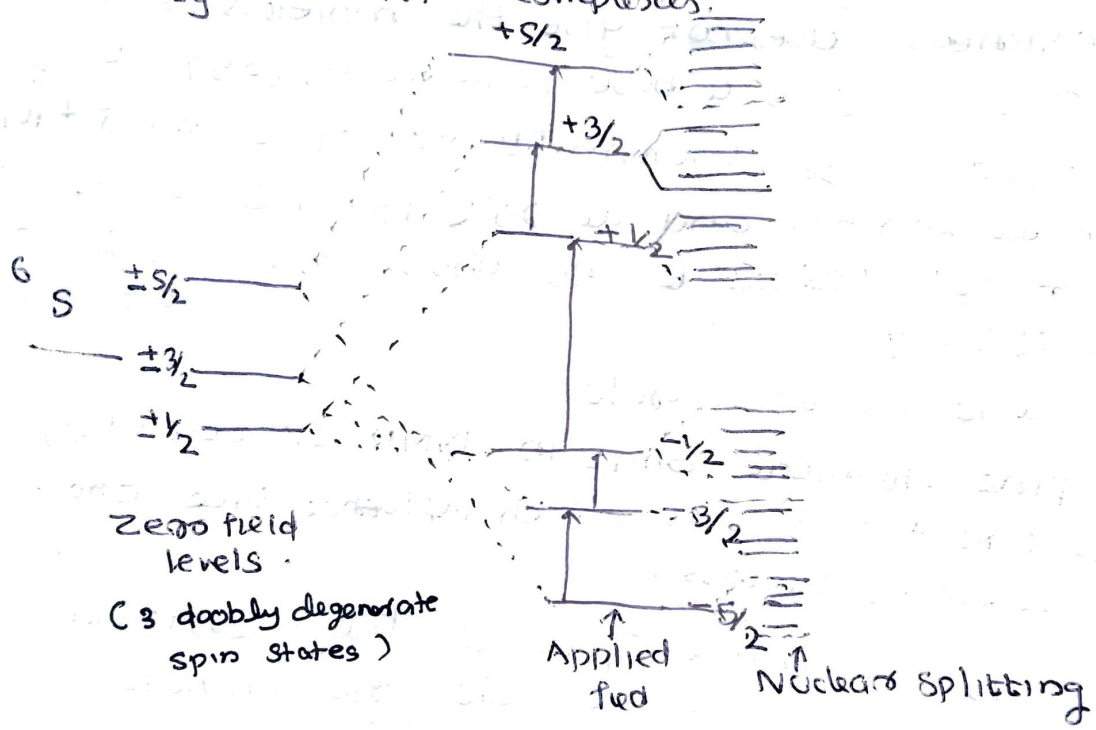 complexes.
+5/2
+3/2
+1/2
6
S
±5/2
±3/2
±1/2
-1/2
-3/2
-5/2
Zero field
levels.
(3 doobly degenerate
spin states)
Applied
fied
Nuclear splitting